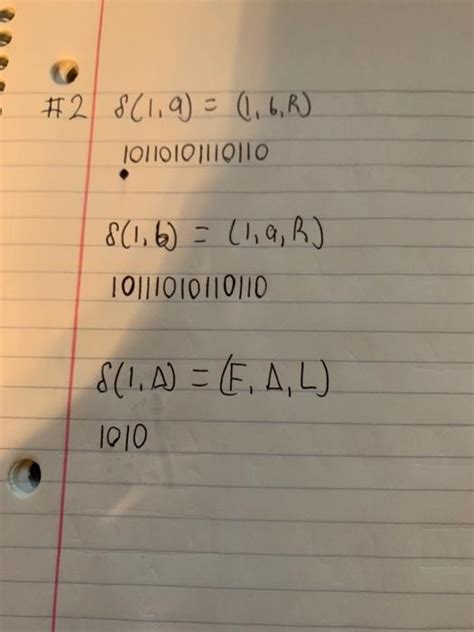 #2 δ(1,a) = (1,b,R)
10110101110110
δ(1,b) = (1,a,R)
10111010110110
δ(1,Δ) = (F,Δ,L)
1010